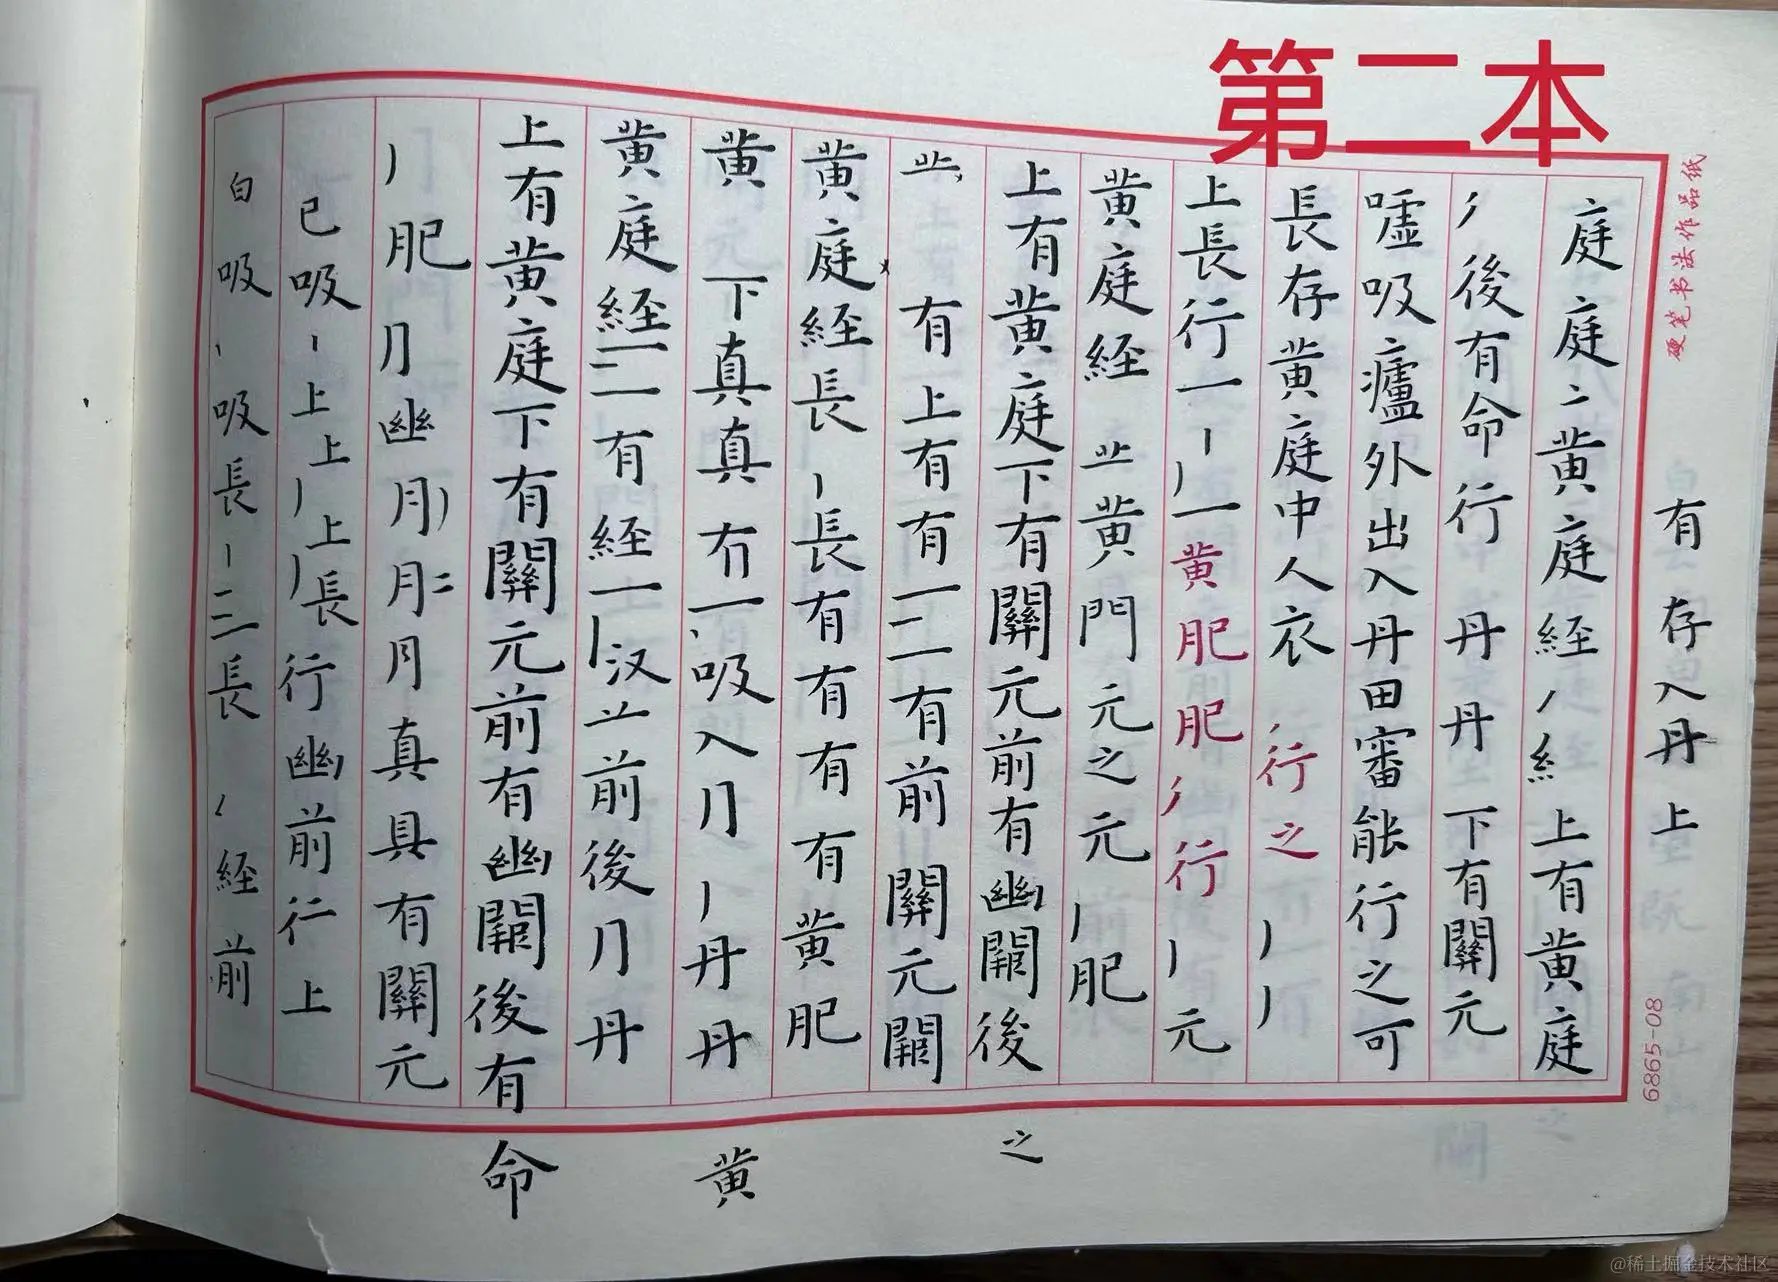 第二本
硬笔书法作品纸
6865-08
有存入丹上
庭庭二黄庭庭経糹上有黄庭
後有命行丹丹下有關元
嘘吸廬外出入丹田審能行之可
長存黄庭中人衣行之
上長行一一黄肥肥行元
黄庭経黄門元之元肥
上有黄庭下有關元前有幽闕後
之
有上有有一二有前關元闕
黄庭経長長有有有有黄肥
黄下真真冇一吸入丹丹
黄
黄庭経一二有経一汉前後丹
上有黄庭下有關元前有幽闕後有
命
肥幽月月月真具有關元
已吸上上上長行幽前行上
白吸吸長二長経前
@稀土掘金技术社区